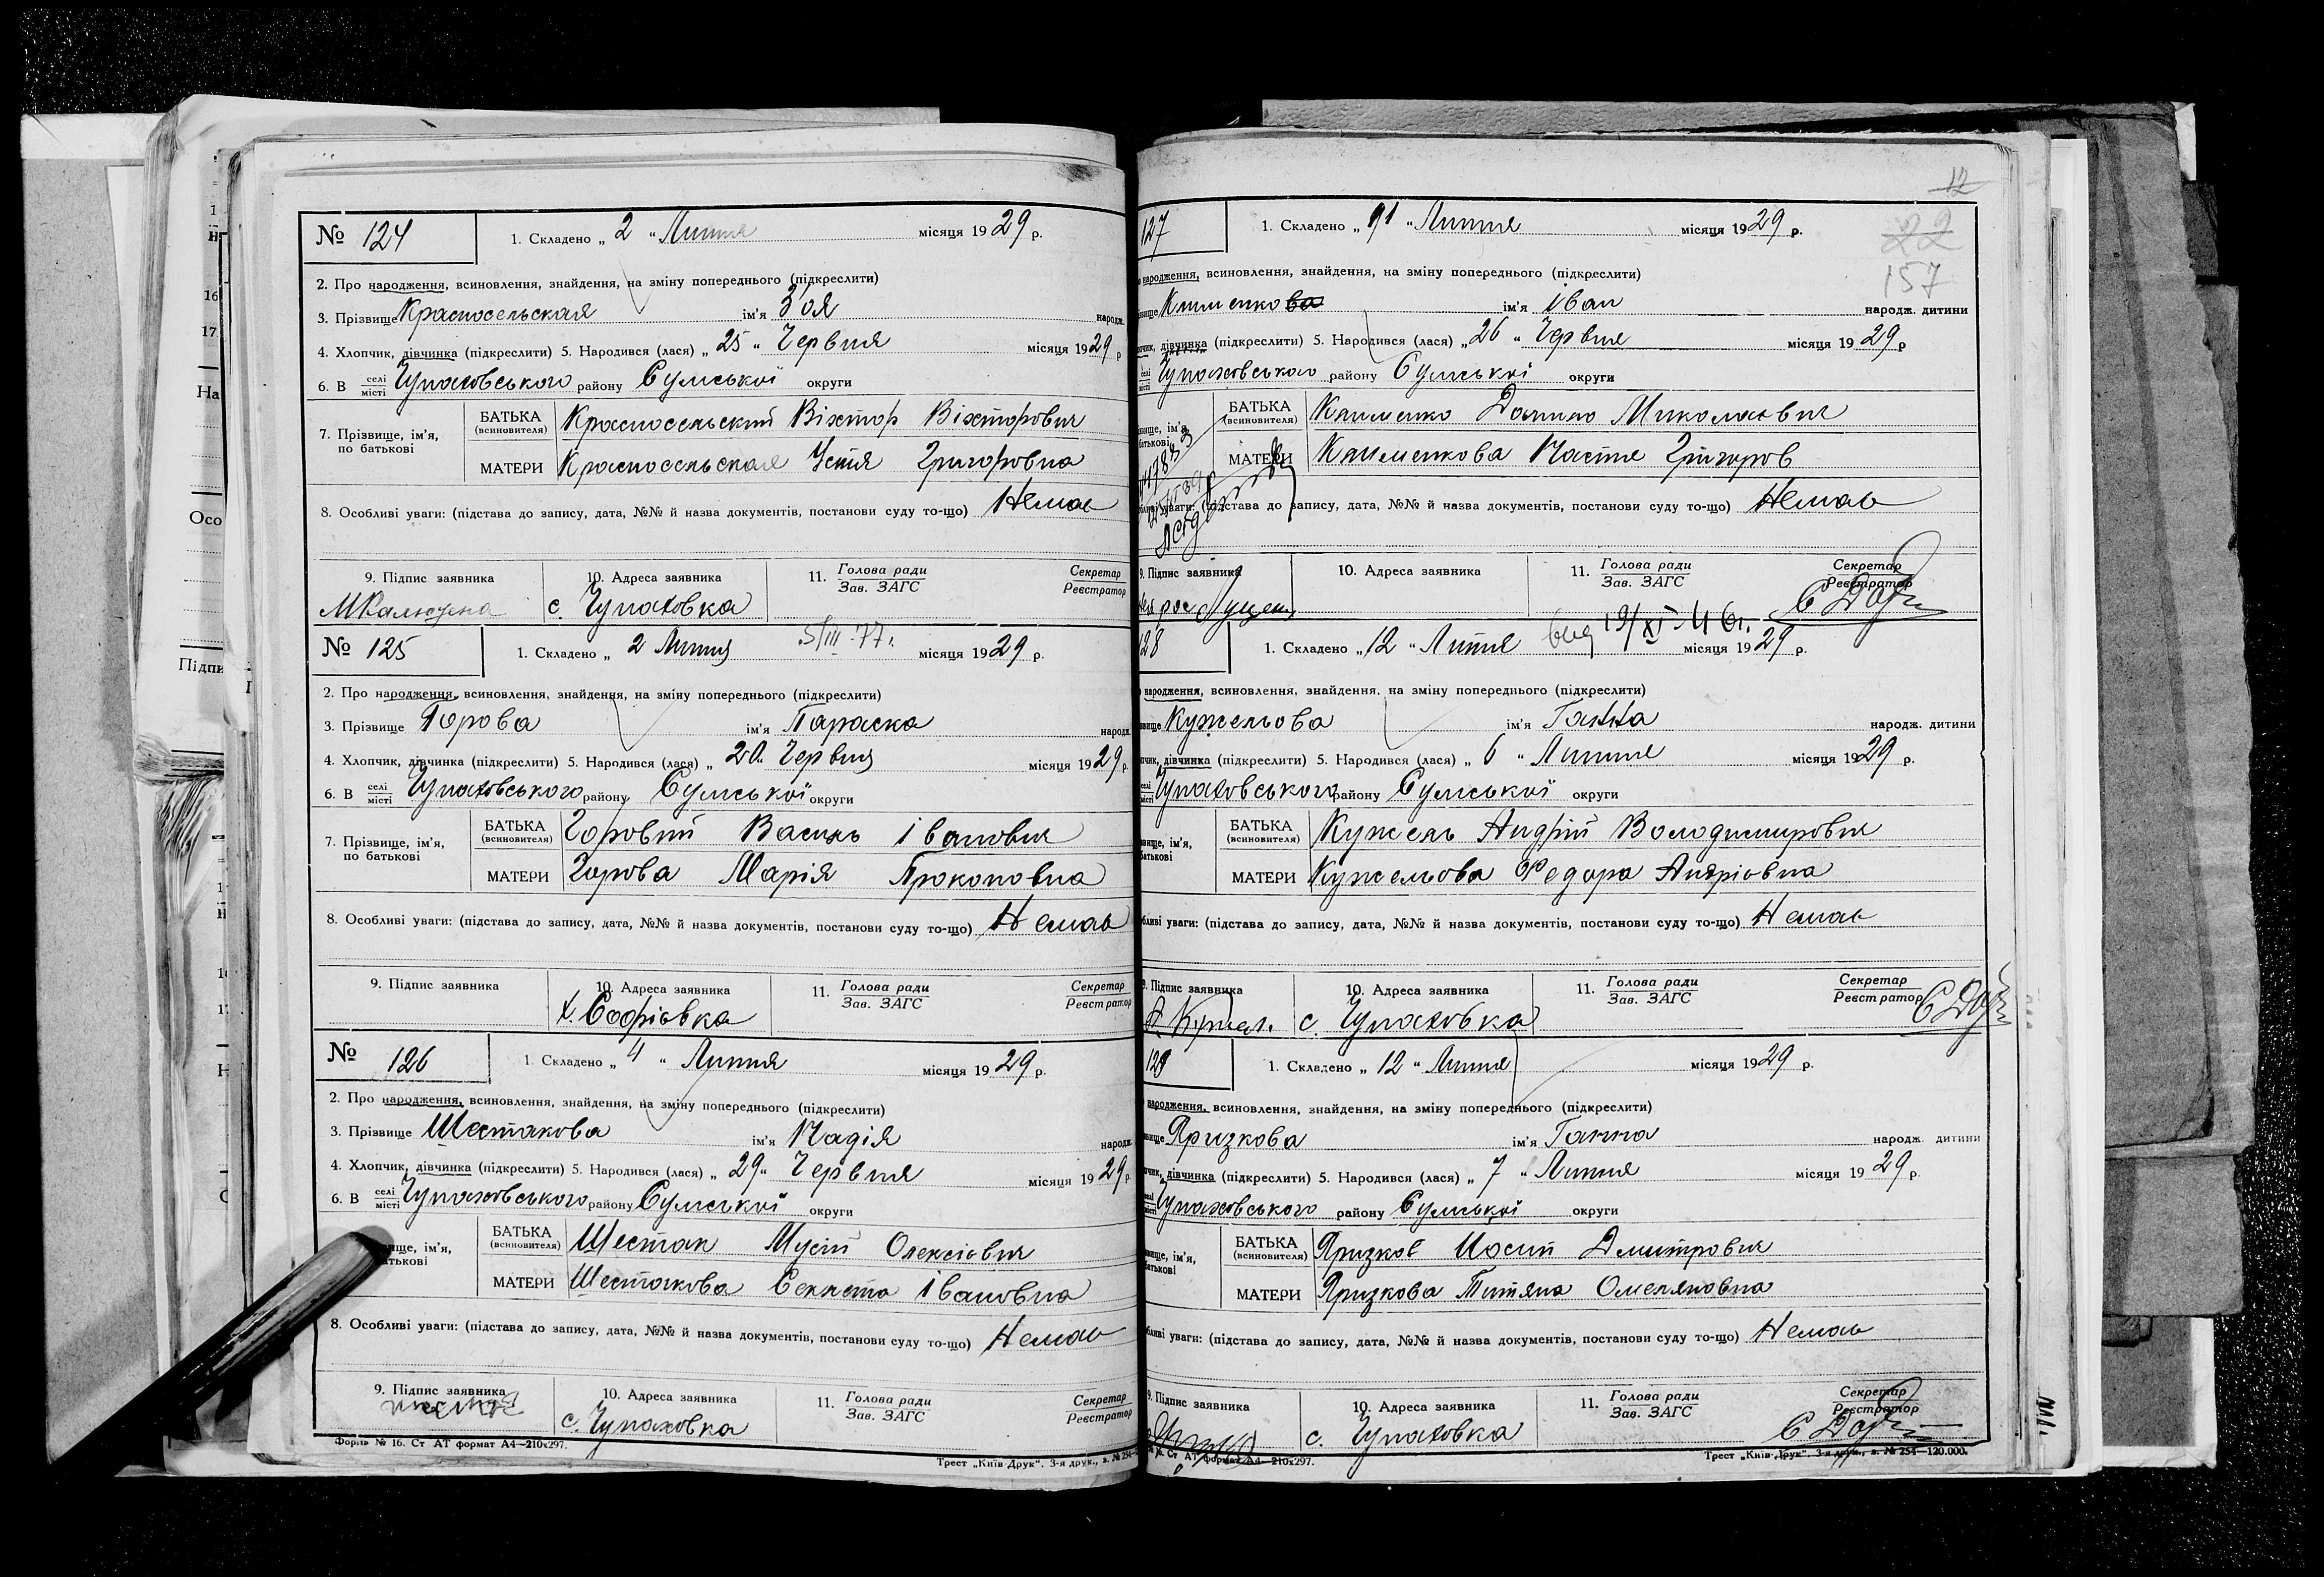 № 124
1. Складено „ 2 “ Липня місяця 1929 р.
2. Про народження, всиновлення, знайдення, на зміну попереднього (підкреслити)
3. Прізвище Красносельская ім'я Зоя народж.
4. Хлопчик, дівчинка (підкреслити) 5. Народився (лася) „ 25 “ Червня місяця 1929 р
6. В селі місті Чупаховського району Сумської округи
7. Прізвище, ім'я, по батькові
БАТЬКА (всиновителя) Красносельский Віктор Вікторович
МАТЕРИ Красносельская Устя Григоровна
8. Особливі уваги: (підстава до запису, дата, №№ й назва документів, постанови суду то-що) Немає
9. Підпис заявника 10. Адреса заявника 11. Голова ради Зав. ЗАГС Секретар Реєстратор
с. Чупаховка
№ 125
1. Складено „ 2 Липня 5/III-77г. місяця 1929 р.
2. Про народження, всиновлення, знайдення, на зміну попереднього (підкреслити)
3. Прізвище Горова ім'я Параска народж.
4. Хлопчик, дівчинка (підкреслити) 5. Народився (лася) „ 20 “ Червня місяця 1929 р.
6. В селі місті Чупаховського району Сумської округи
7. Прізвище, ім'я, по батькові
БАТЬКА (всиновителя) Горовий Василь Іванович
МАТЕРИ Горова Марія Прокоповна
8. Особливі уваги: (підстава до запису, дата, №№ й назва документів, постанови суду то-що) Немає
9. Підпис заявника 10. Адреса заявника 11. Голова ради Зав. ЗАГС Секретар Реєстратор
х. Софієвка
№ 126
1. Складено „ 4 “ Липня місяця 1929 р.
2. Про народження, всиновлення, знайдення, на зміну попереднього (підкреслити)
3. Прізвище Шестакова ім'я Надія народж.
4. Хлопчик, дівчинка (підкреслити) 5. Народився (лася) „ 29 “ Червня місяця 1929 р.
6. В селі місті Чупаховського району Сумської округи
ище, ім'я, атькові
БАТЬКА (всиновителя) Шестак Мусій Олексієвич
МАТЕРИ Шестакова Секлета Івановна
8. Особливі уваги: (підстава до запису, дата, №№ й назва документів, постанови суду то-що) Немає
9. Підпис заявника 10. Адреса заявника 11. Голова ради Зав. ЗАГС Секретар Реєстратор
с. Чупаховка
Форма № 16. Ст АТ формат А4—210х297.
Трест „Київ-Друк“. 3-я друк., з. № 254
12
22
157
127
1. Складено „ 11 “ Липня місяця 1929 р.
народження, всиновлення, знайдення, на зміну попереднього (підкреслити)
Клименкова ім'я Іван народж. дитини
дівчинка (підкреслити) 5. Народився (лася) „ 26 “ Червня місяця 1929 р
селі місті Чупаховського району Сумської округи
БАТЬКА (всиновителя) Клименко Данило Миколаєвич
МАТЕРИ Клименкова Настя Григоров
уваги: (підстава до запису, дата, №№ й назва документів, постанови суду то-що) Немає
9. Підпис заявника 10. Адреса заявника 11. Голова ради Зав. ЗАГС Секретар Реєстратор
128
1. Складено „ 12 “ Липня 19/XI-46г. місяця 1929 р.
народження, всиновлення, знайдення, на зміну попереднього (підкреслити)
Кужельова ім'я Ганна народж. дитини
дівчинка (підкреслити) 5. Народився (лася) „ 6 “ Липня місяця 1929 р.
селі місті Чупаховського району Сумської округи
БАТЬКА (всиновителя) Кужель Андрій Володимирович
МАТЕРИ Кужельова Федора Андрієвна
уваги: (підстава до запису, дата, №№ й назва документів, постанови суду то-що) Немає
Підпис заявника 10. Адреса заявника 11. Голова ради Зав. ЗАГС Секретар Реєстратор
с. Чупаховка
129
1. Складено „ 12 “ Липня місяця 1929 р.
народження, всиновлення, знайдення, на зміну попереднього (підкреслити)
Яризкова ім'я Ганна народж. дитини
дівчинка (підкреслити) 5. Народився (лася) „ 7 “ Липня місяця 1929 р.
селі місті Чупаховського району Сумської округи
БАТЬКА (всиновителя) Яризков Иосип Дмитрович
МАТЕРИ Яризкова Титяна Омеляновна
уваги: (підстава до запису, дата, №№ й назва документів, постанови суду то-що) Немає
9. Підпис заявника 10. Адреса заявника 11. Голова ради Зав. ЗАГС Секретар Реєстратор
с. Чупаховка
Ст АТ формат А4—210х297.
Трест „Київ-Друк“. 3-я друк., з. № 254—120.000.